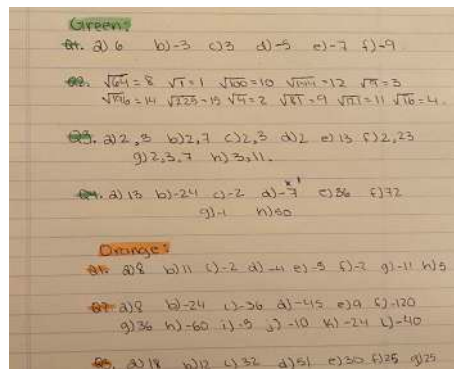 Green:
Q1. a) 6 b) -3 c) 3 d) -5 e) -7 f) -9
Q2. √64 = 8 √1 = 1 √100 = 10 √144 = 12 √9 = 3
√196 = 14 √225 = 15 √4 = 2 √81 = 9 √121 = 11 √16 = 4.
Q3. a) 2,3 b) 2,7 c) 2,3 d) 2 e) 13 f) 2,23
g) 2,3,7 h) 3,11.
Q4. a) 13 b) -24 c) -2 d) -7 e) 36 f) 72
g) -1 h) 50
Orange:
Q1. a) 8 b) 11 c) -2 d) -4 e) -5 f) -2 g) -11 h) 5
Q2. a) 8 b) -24 c) -36 d) -45 e) 9 f) -120
g) 36 h) -60 i) -5 j) -10 k) -24 l) -40
Q3. a) 18 b) 12 c) 32 d) 51 e) 30 f) 25 g) 25